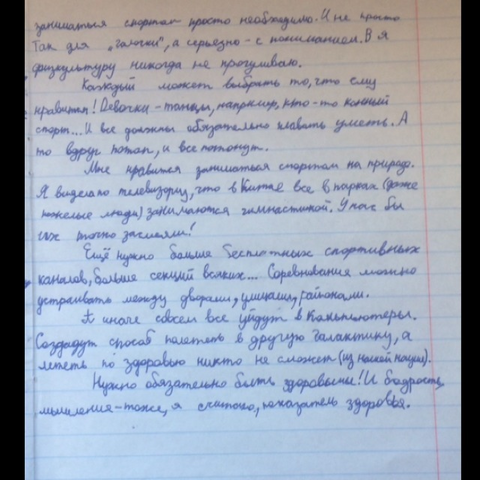 заниматься спортом просто необходимо. И не просто
так для „галочки", а серьезно - с пониманием. В я
физкультуру никогда не прогуливаю.
Каждый может выбрать то, что ему
нравится! Девочки - танцы, например, кто-то конный
спорт... И все должны обязательно плавать уметь. А
то вдруг потоп, и все потонут.
Мне нравится заниматься спортом на природе.
Я видела по телевизору, что в Китае все в парках (даже
пожилые люди) занимаются гимнастикой. У нас бы
их точно засмеяли!
Ещё нужно больше бесплатных спортивных
каналов, больше секций всяких... Соревнования можно
устраивать между дворами, улицами, районами.
А иначе совсем все уйдут в компьютеры.
Создадут способ полететь в другую галактику, а
лететь по здоровью никто не сможет (из нашей нации).
Нужно обязательно быть здоровыми! И бодрость
мышления - тоже, я считаю, показатель здоровья.